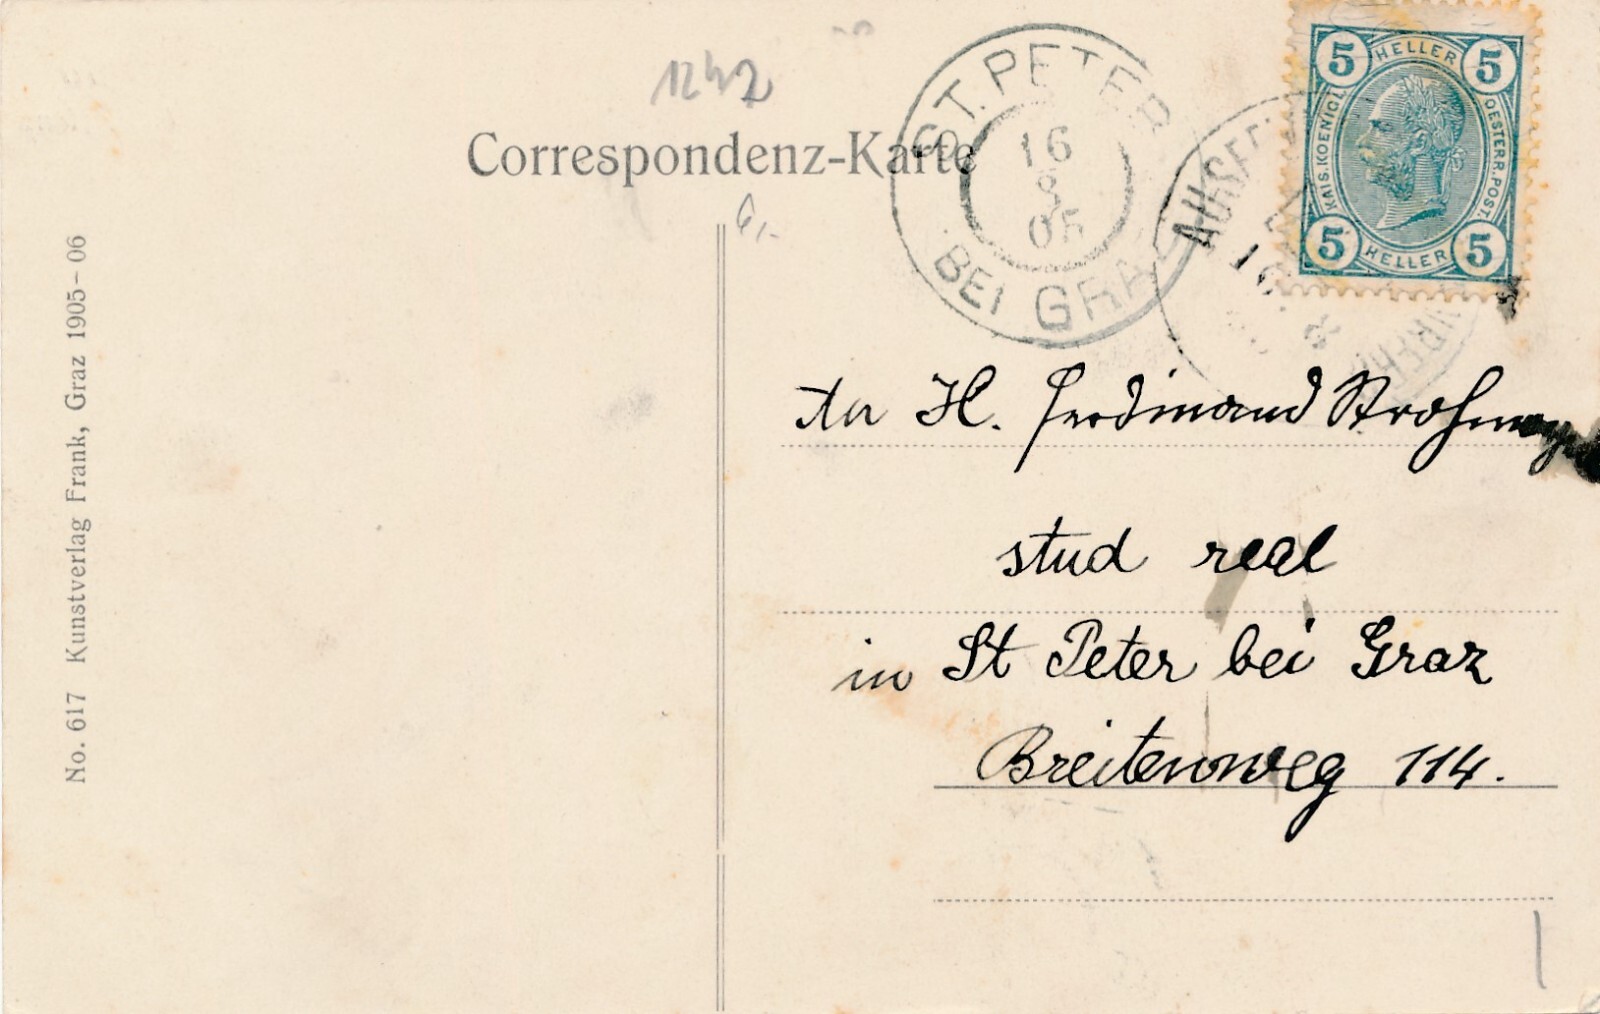 1242
Correspondenz-Karte
ST. PETER
16
8
05
BEI GRAZ
5 HELLER 5
KAIS. KOENIGL.
OESTERR. POST.
5 HELLER 5
16
H. Ferdinand
stud real
in St Peter bei Graz
Breitenweg 114.
No. 617 Kunstverlag Frank, Graz 1905-06